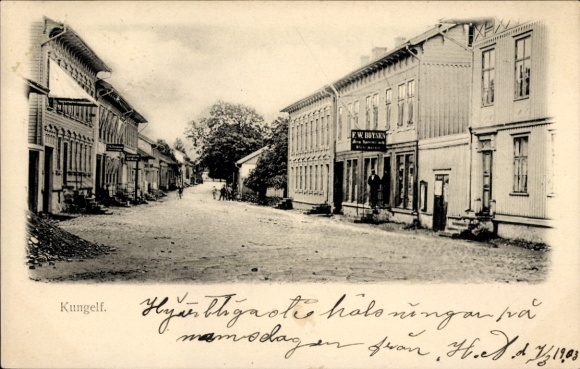 F. W. HOLTSEN
Jern
Kungelf.
Hjärtligaste hälsningar på
namnsdagen från H. d. 7/3 1903